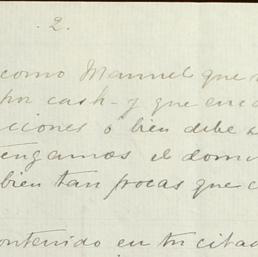 .2.
como Manuel que
por cash - y que en
iciones ó bien debe
tengamos el domi
bien tan pocas que c
ontenido en tu citad